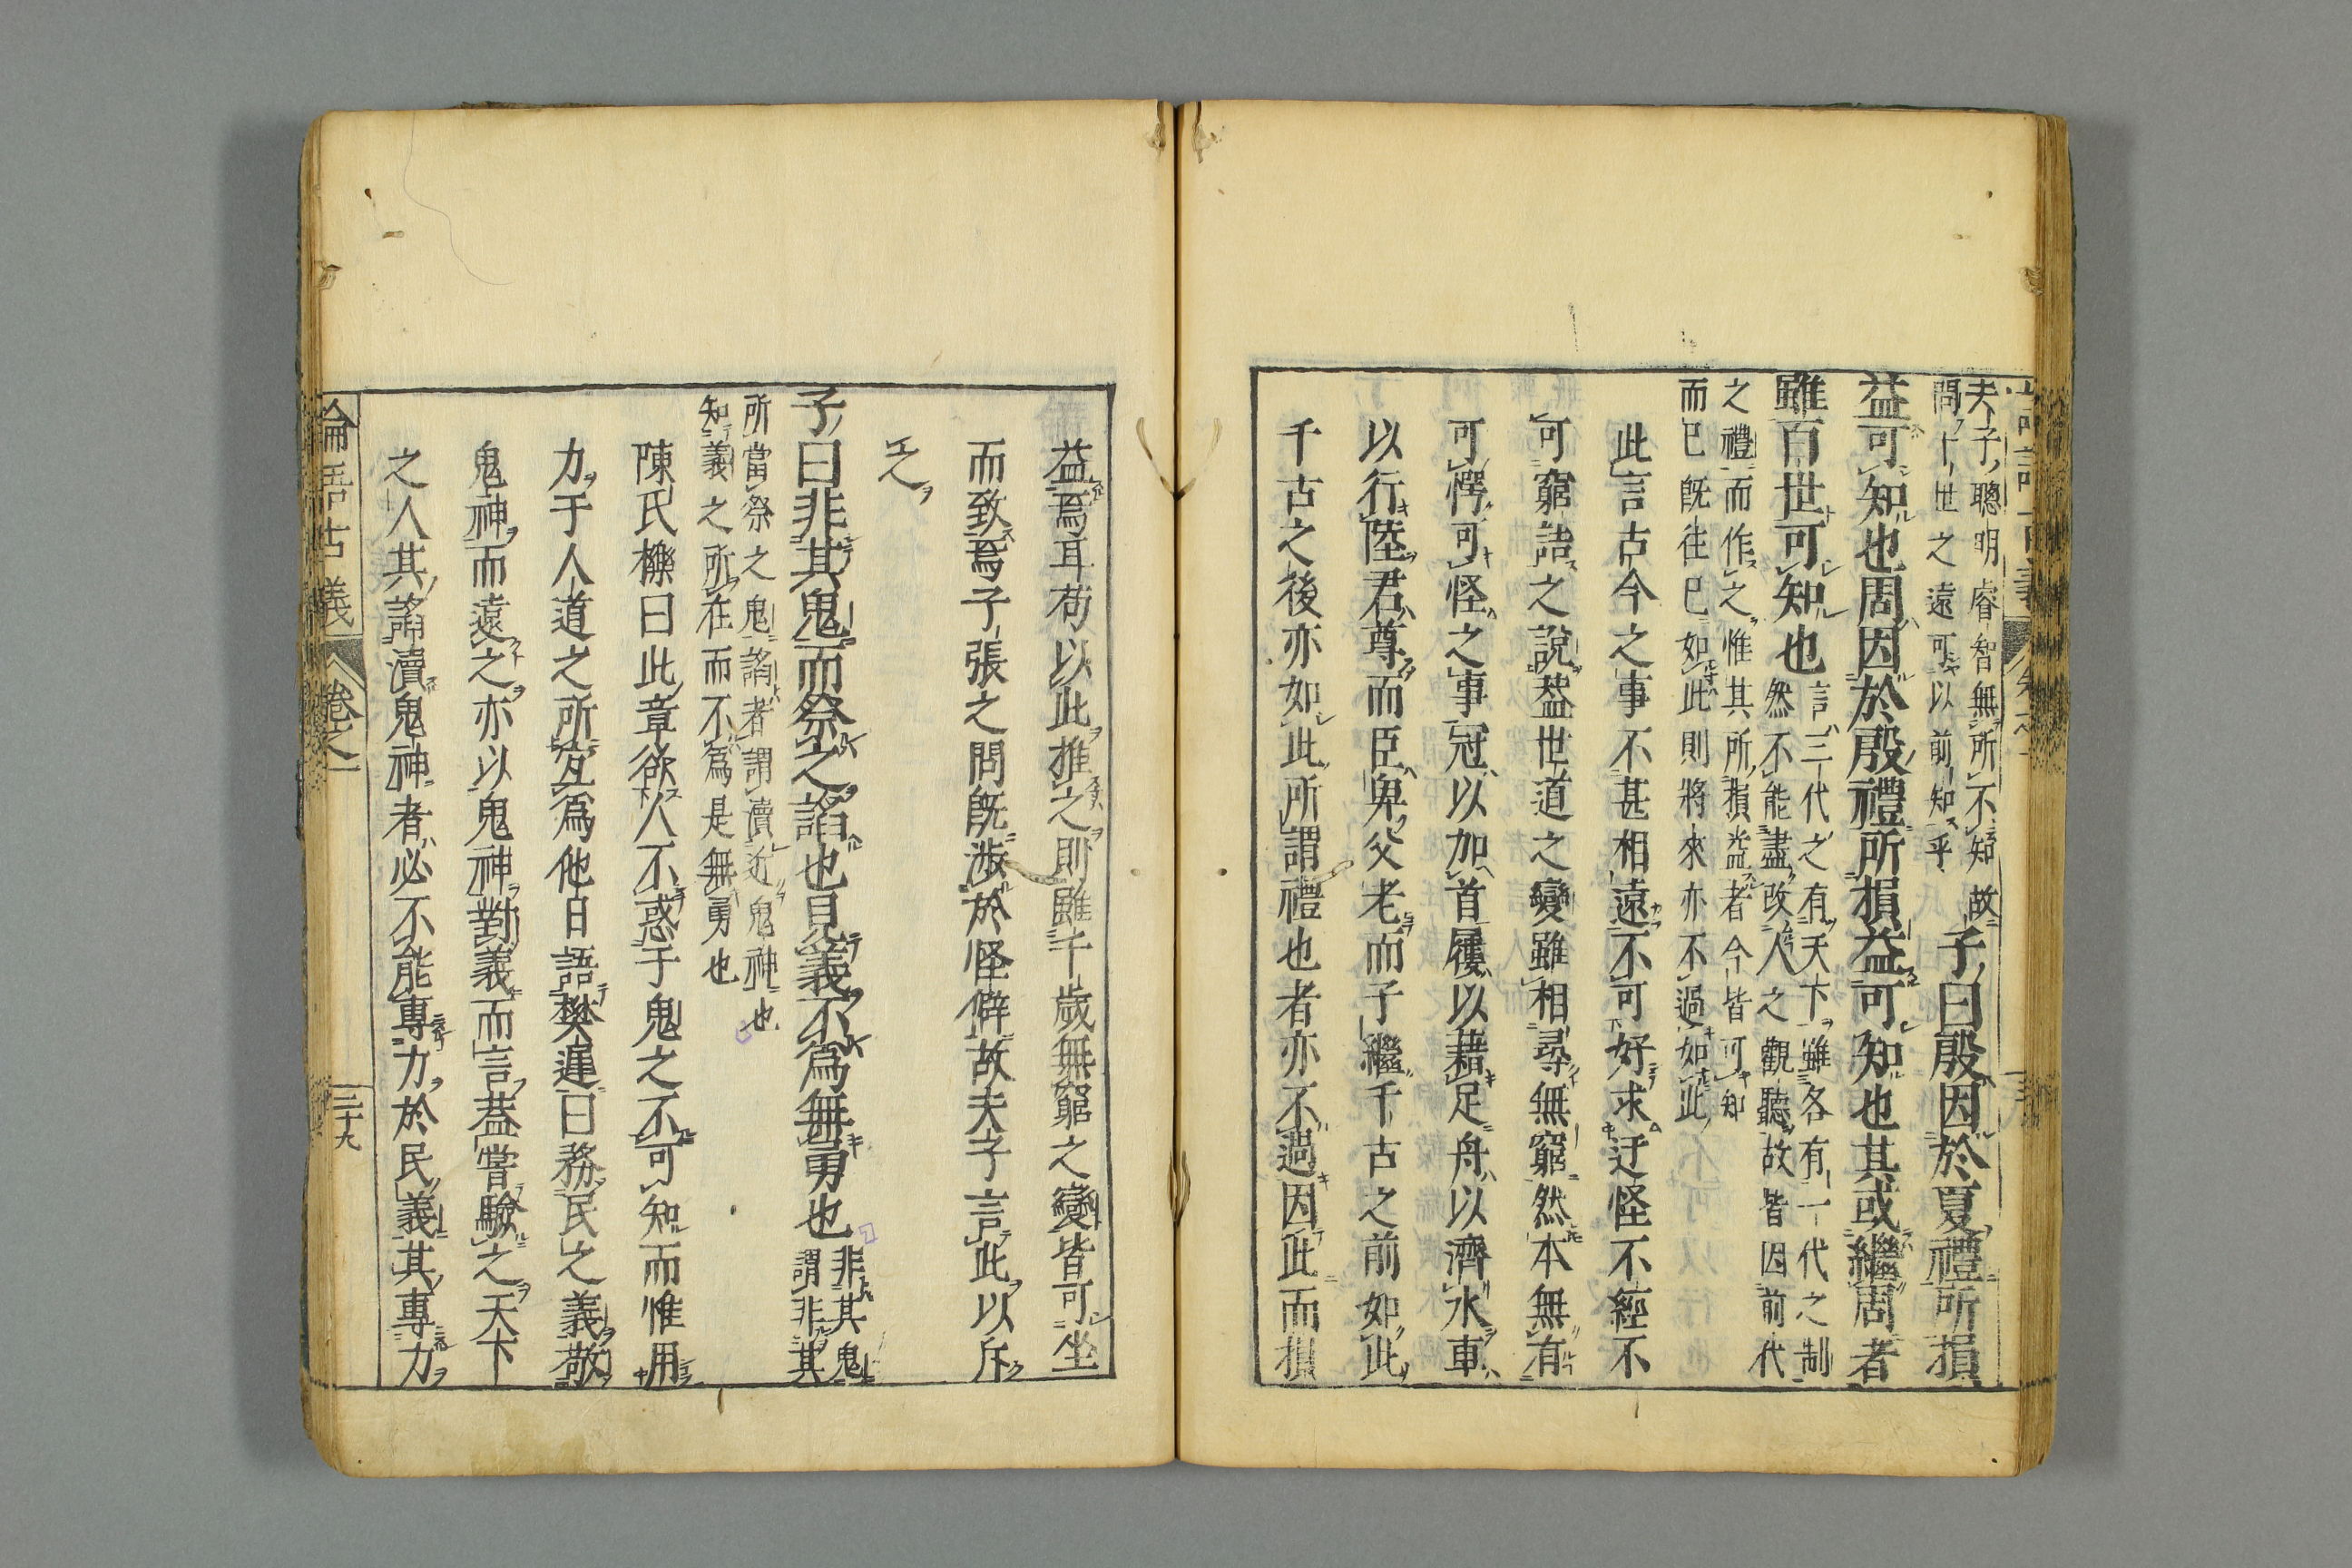 夫子聰明睿智無所不知故
問十世之遠可以前知乎
子曰殷因於夏禮所損
益可知也周因於殷禮所損益可知也其或繼周者
雖百世可知也
言三代之有天下雖各有一代之制
然不能盡改人之觀聽故皆因前代
之禮而作之惟其所損益者今皆可知
而已既往已如此則將來亦不過如此
此言古今之事不甚相遠不可好求迂怪不經不
可窮詰之說蓋世道之變雖相尋無窮然本無有
可愕可怪之事冠以加首屨以藉足舟以濟水車
以行陸君尊而臣卑父老而子繼千古之前如此
千古之後亦如此所謂禮也者亦不過因此而損
益焉耳苟以此推之則雖千歲無窮之變皆可坐
而致焉子張之問既涉於怪僻故夫子言此以斥
之
子曰非其鬼而祭之諂也見義不爲無勇也
非其鬼
謂非其
所當祭之鬼諂者謂瀆近鬼神也
知義之所在而不爲是無勇也
陳氏櫟曰此章欲人不惑于鬼之不可知而惟用
力于人道之所宜爲他日語樊遲曰務民之義敬
鬼神而遠之亦以鬼神對義而言蓋嘗驗之天下
之人其諂瀆鬼神者必不能專力於民義其專力
論語古義
卷之一
三十九